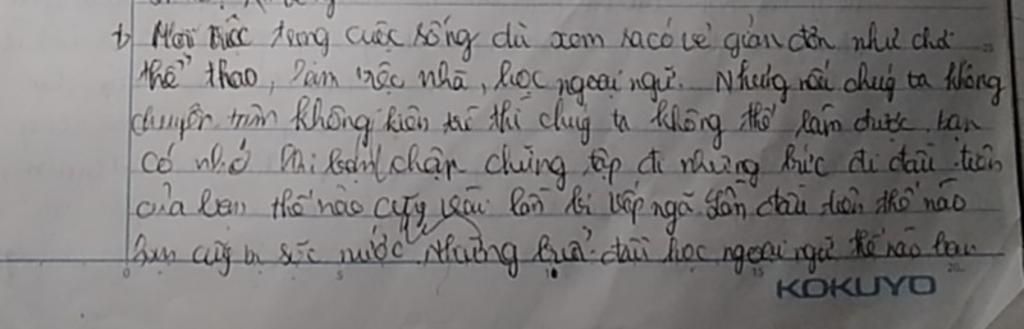 b) Mọi việc trong cuộc sống dù xem ra có vẻ giản đơn như chơi
thể thao, làm việc nhà, học ngoại ngữ. Nhưng nếu chúg ta không
chuyên tâm không kiên trì thì chúg ta không thể làm được. bạn
có nhớ khi bạn chập chững tập đi những bước đi đầu tiên
của bạn thế nào cũg vấp ngã lần đầu tiên thế nào
bạn cũg bị sặc nước, những buổi đầu học ngoại ngữ thế nào bạn
KOKUYO